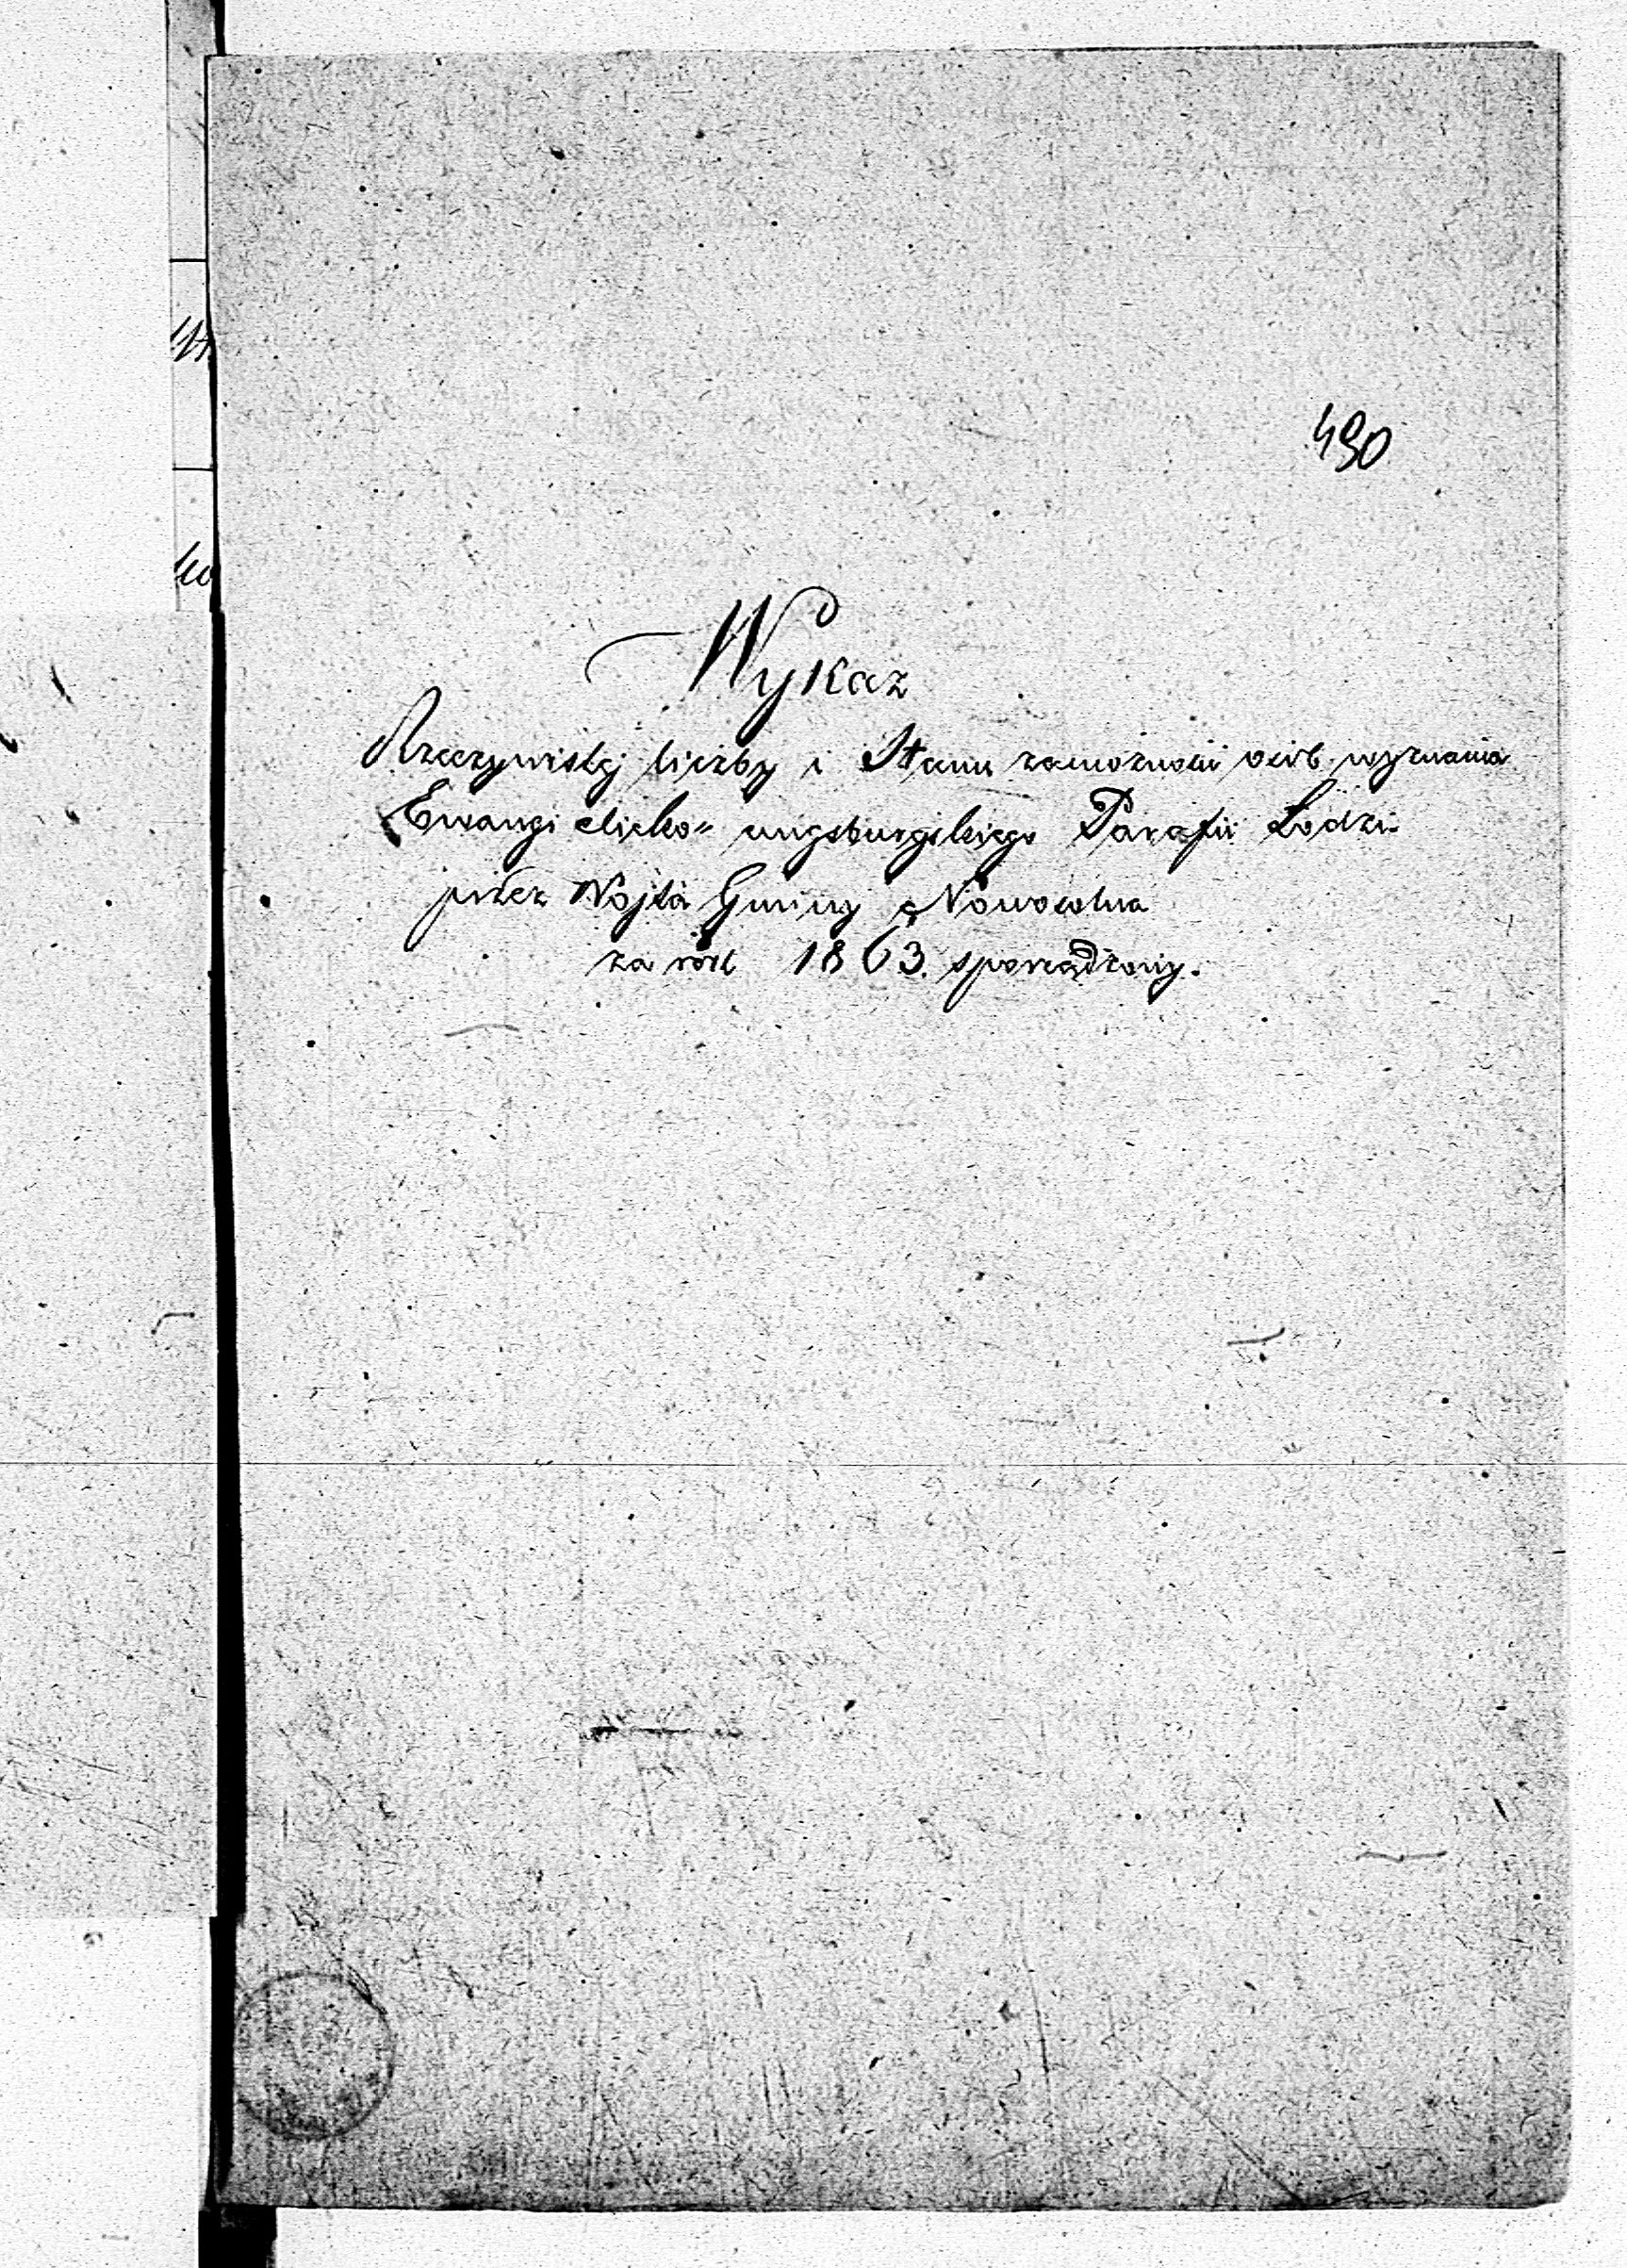 490
Wykaz
Rzeczywistej liczby i Stanu zamożności osób wyznania
Ewangielicko= augsburgskiego Parafii Łodzi
przez Wójta Gminy Nowosolna
za rok 1863. sporządzony.